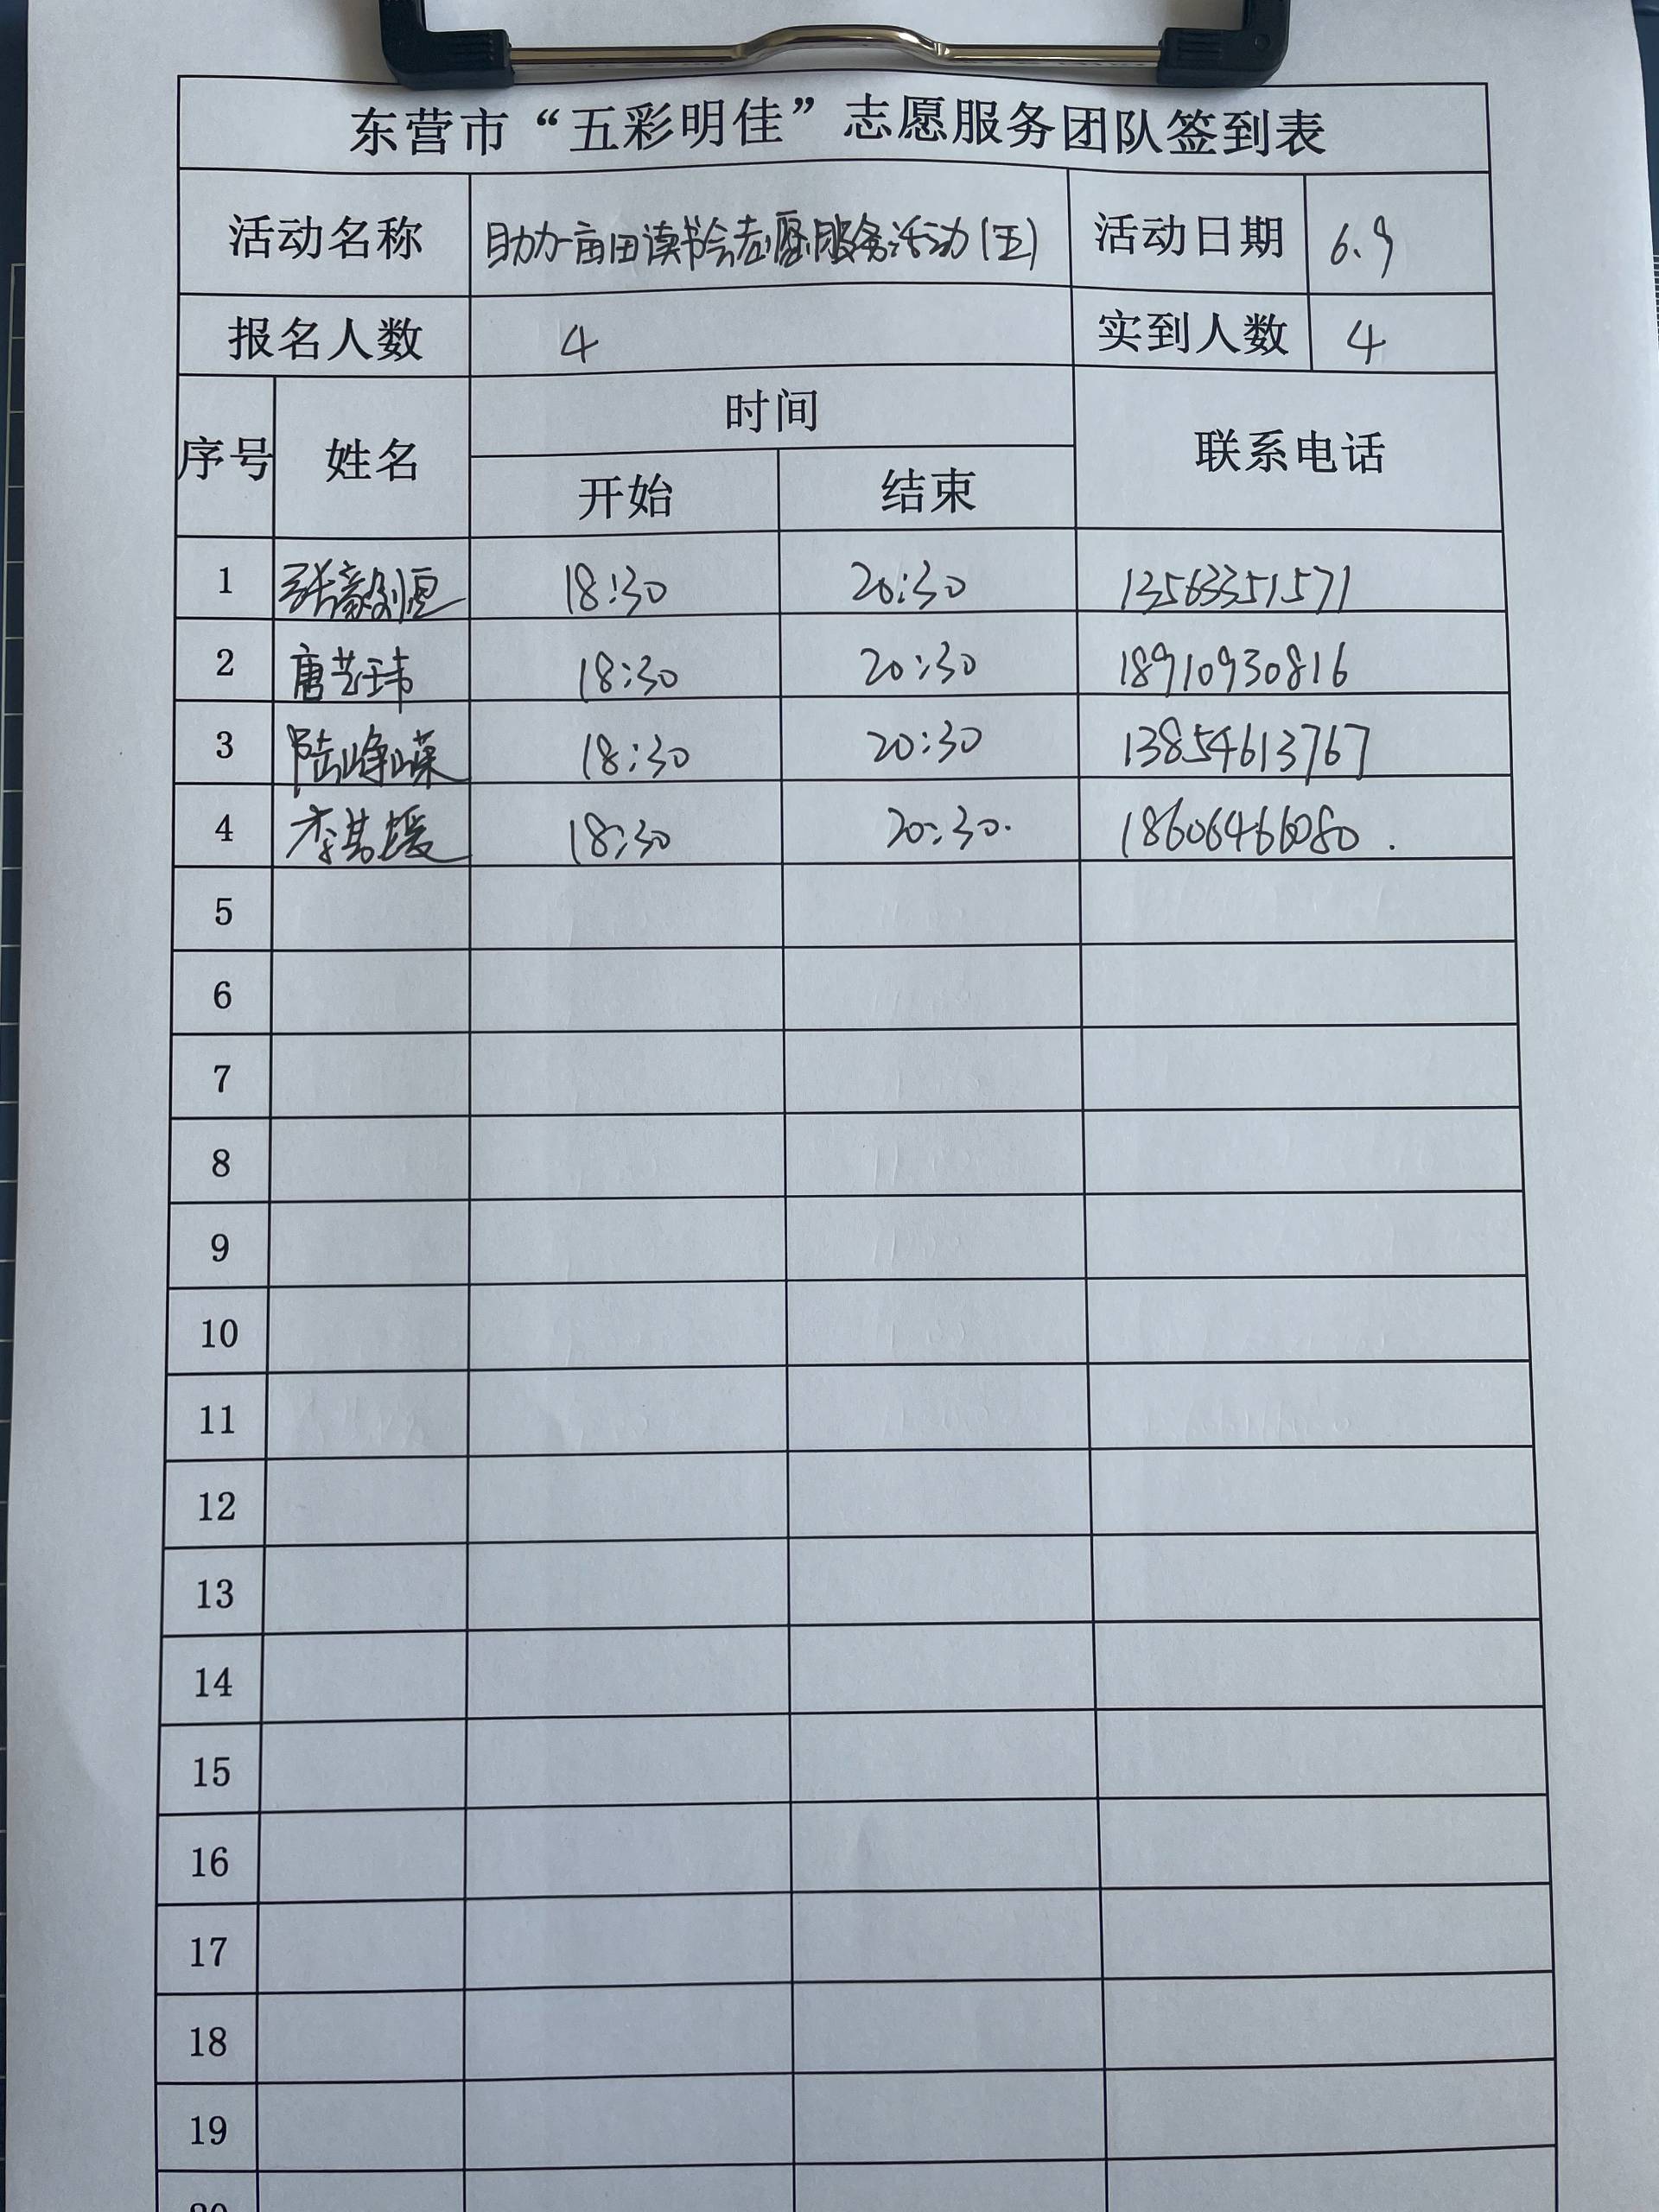 东营市“五彩明佳”志愿服务团队签到表
活动名称 助力一亩田读书会志愿服务活动(五) 活动日期 6.9
报名人数 4 实到人数 4
序号 姓名 时间 联系电话
开始 结束
1 张毅恒 18:30 20:30 13563351571
2 唐艺玮 18:30 20:30 18910930816
3 陆峥嵘 18:30 20:30 13854613767
4 李其媛 18:30 20:30. 18606466080.
5
6
7
8
9
10
11
12
13
14
15
16
17
18
19